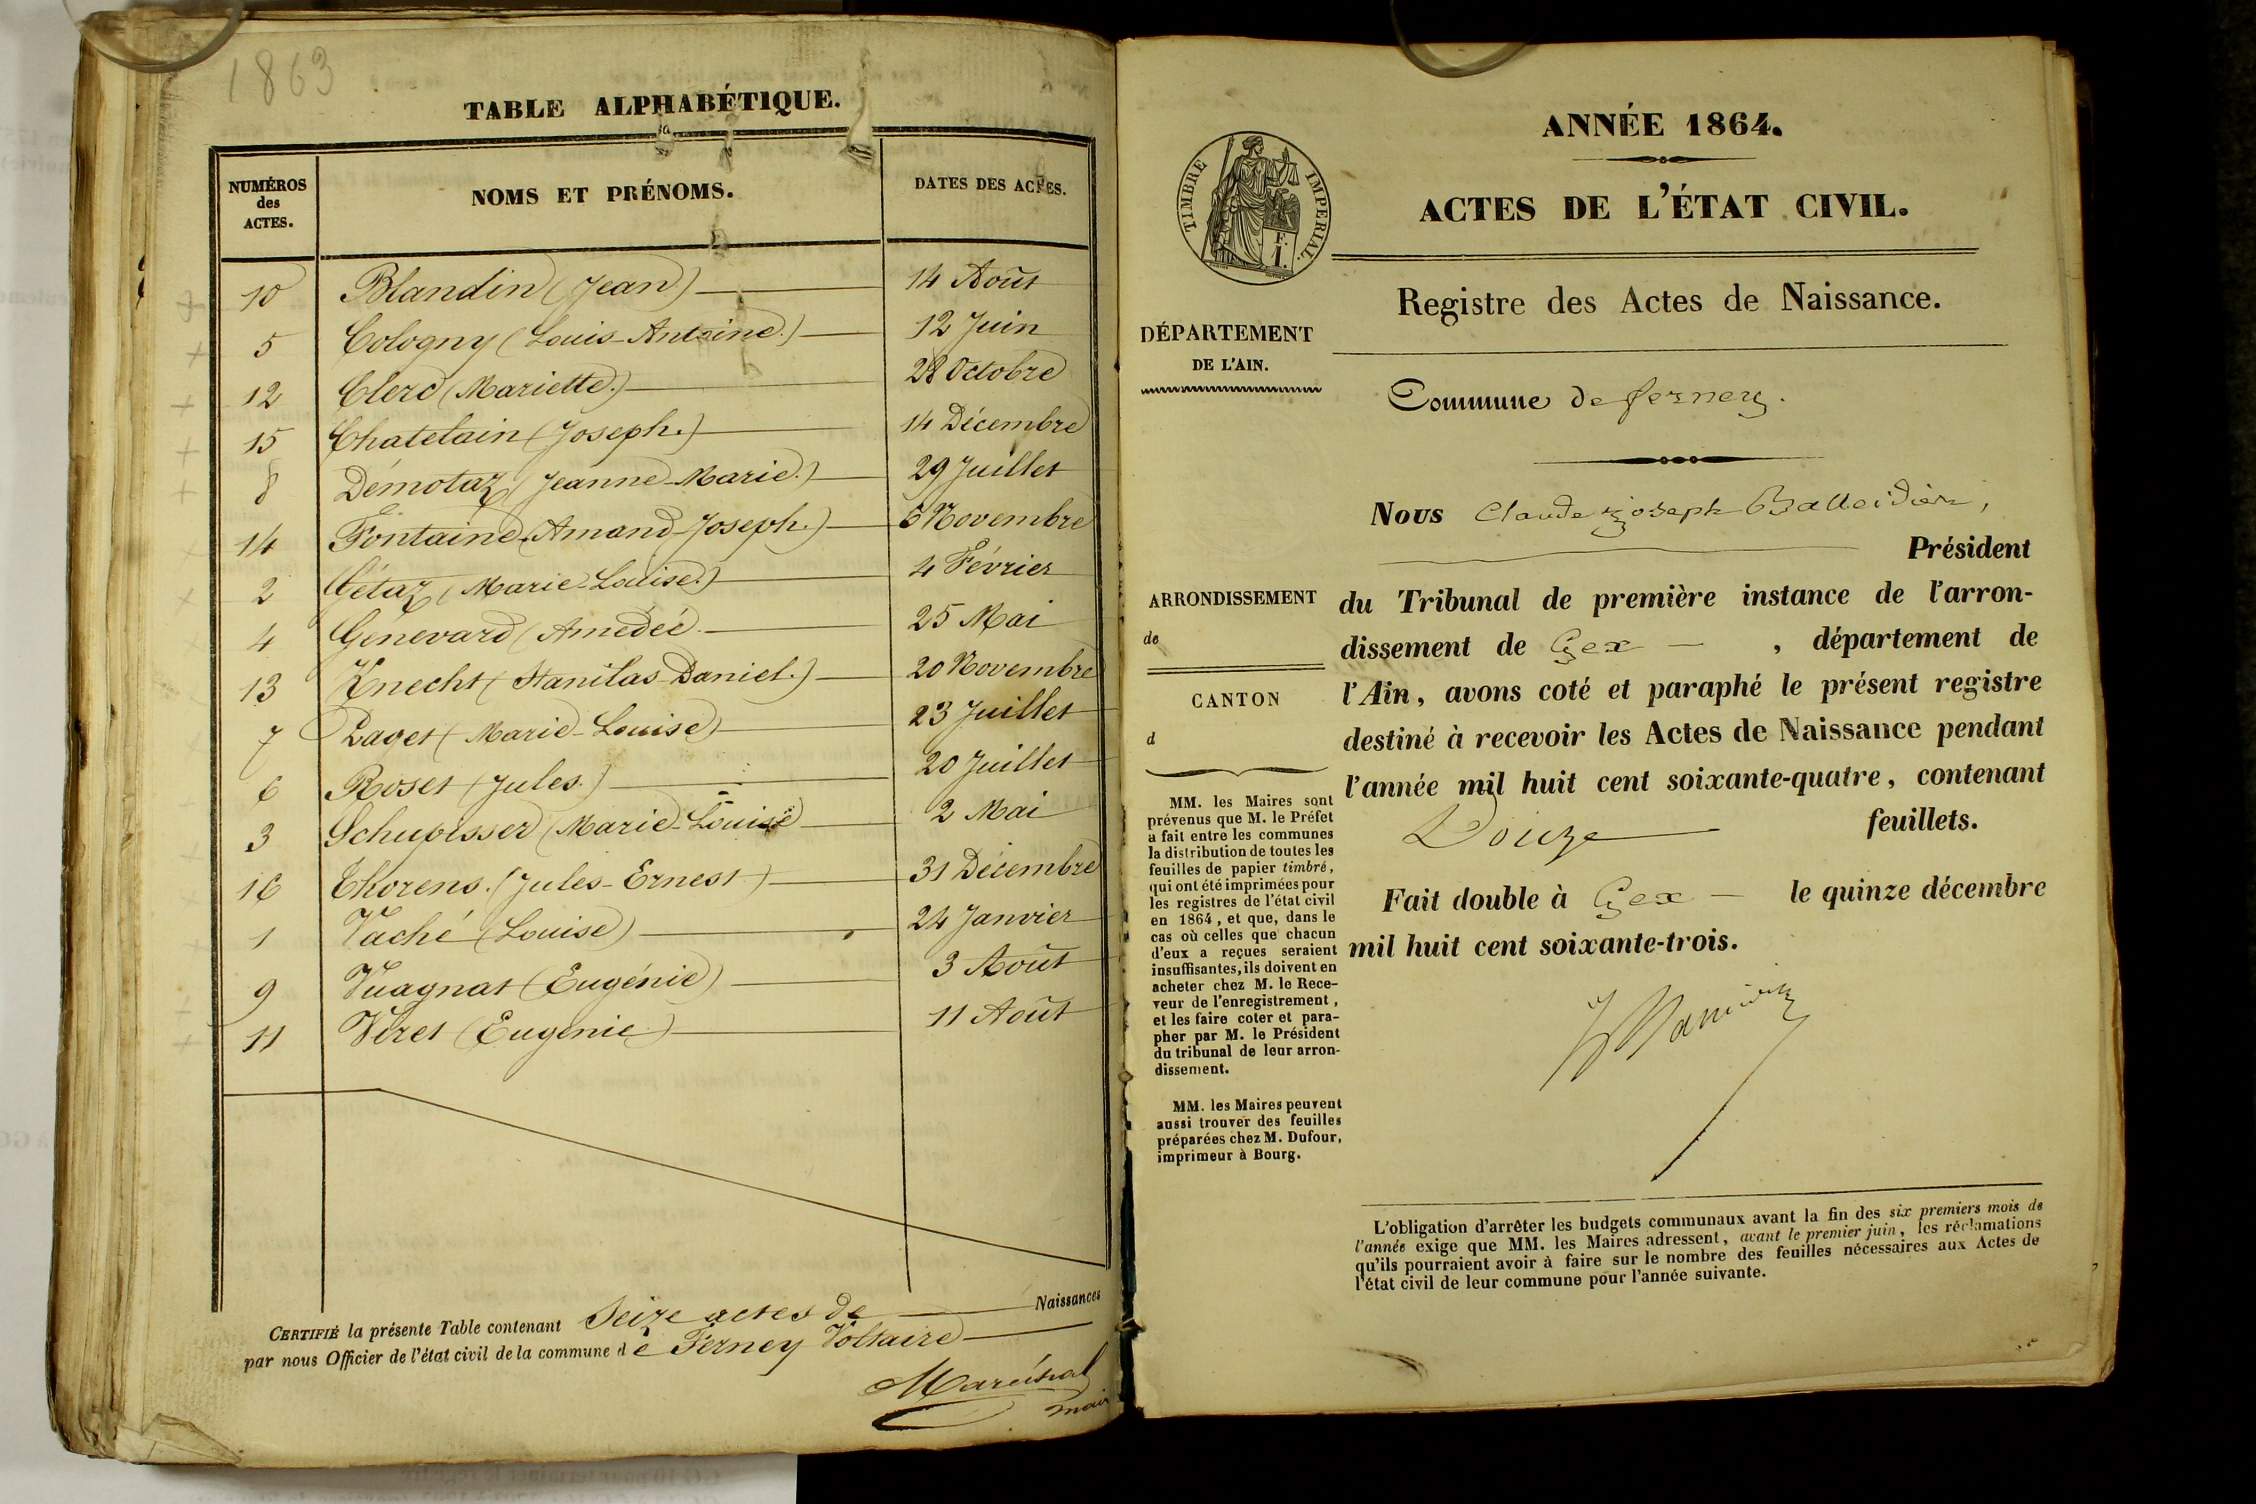 1863
TABLE ALPHABÉTIQUE.
NUMÉROS des ACTES. NOMS ET PRÉNOMS. DATES DES ACTES.
10 Blandin (Jean) 14 Août
5 Cologny (Louis-Antoine) 12 Juin
12 Clerc (Mariette) 28 Octobre
15 Chatelain (Joseph.) 14 Décembre
8 Démotaz (Jeanne-Marie.) 29 Juillet
14 Fontaine (Amand-Joseph.) 6 Novembre
2 Gétaz (Marie-Louise.) 4 Février
4 Génevard (Amédée. 25 Mai
13 Knecht (Stanilas Daniel.) 20 Novembre
7 Lavet (Marie-Louise) 23 Juillet
6 Roset (Jules.) 20 Juillet
3 Schupisser (Marie-Louise) 2 Mai
16 Thorens. (Jules-Ernest) 31 Décembre
1 Vaché (Louise) 24 Janvier
9 Vuagnat (Eugénie) 3 Août
11 Véret (Eugénie) 11 Août
CERTIFIÉ la présente Table contenant Seize actes de Naissances
par nous Officier de l'état civil de la commune de Ferney Voltaire
Maréchal
maire
ANNÉE 1864.
ACTES DE L'ÉTAT CIVIL.
TIMBRE IMPERIAL.
F.
1.
Registre des Actes de Naissance.
DÉPARTEMENT
DE L'AIN.
Commune de ferney.
Nous Claude Joseph Balleidier,
Président
ARRONDISSEMENT
de
CANTON
d
du Tribunal de première instance de l'arron-
dissement de Gex, département de
l'Ain, avons coté et paraphé le présent registre
destiné à recevoir les Actes de Naissance pendant
l'année mil huit cent soixante-quatre, contenant
Douze feuillets.
Fait double à Gex le quinze décembre
mil huit cent soixante-trois.
MM. les Maires sont
prévenus que M. le Préfet
a fait entre les communes
la distribution de toutes les
feuilles de papier timbré,
qui ont été imprimées pour
les registres de l'état civil
en 1864, et que, dans le
cas où celles que chacun
d'eux a reçues seraient
insuffisantes, ils doivent en
acheter chez M. le Rece-
veur de l'enregistrement,
et les faire coter et para-
pher par M. le Président
du tribunal de leur arron-
dissement.
MM. les Maires peuvent
aussi trouver des feuilles
préparées chez M. Dufour,
imprimeur à Bourg.
L'obligation d'arrêter les budgets communaux avant la fin des six premiers mois de
l'année exige que MM. les Maires adressent, avant le premier juin, les réclamations
qu'ils pourraient avoir à faire sur le nombre des feuilles nécessaires aux Actes de
l'état civil de leur commune pour l'année suivante.